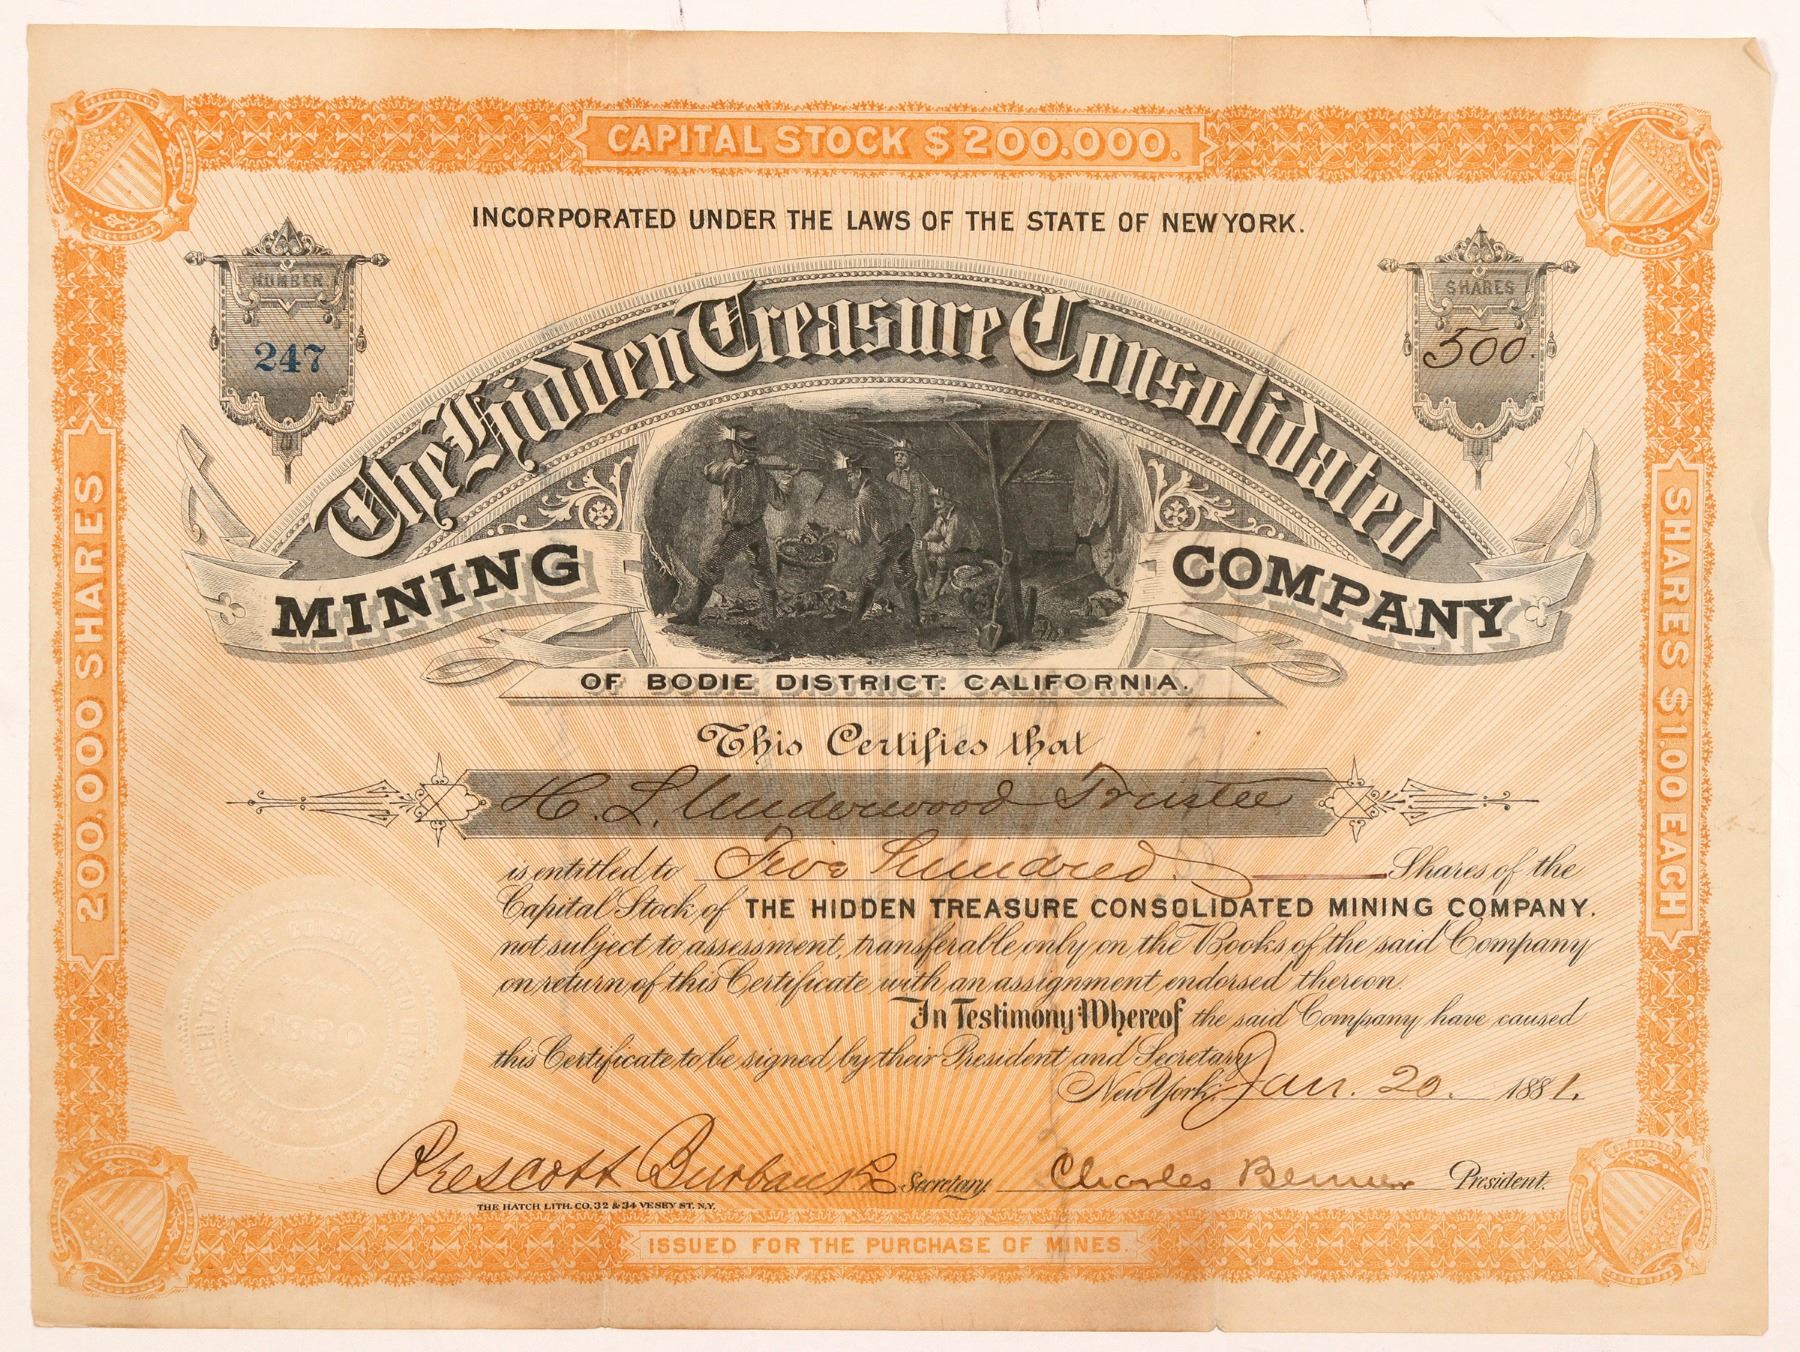 CAPITAL STOCK $200.000.
INCORPORATED UNDER THE LAWS OF THE STATE OF NEW YORK.
NUMBER
247
SHARES
500.
The Hidden Treasure Consolidated
MINING COMPANY
OF BODIE DISTRICT. CALIFORNIA.
200.000 SHARES
SHARES $1.00 EACH
This Certifies that
H. L. Underwood Trustee
is entitled to Five Hundred Shares of the
Capital Stock of THE HIDDEN TREASURE CONSOLIDATED MINING COMPANY.
not subject to assessment, transferable only on the Books of the said Company
on return of this Certificate with an assignment endorsed thereon.
In Testimony Whereof the said Company have caused
this Certificate to be signed by their President and Secretary
New York, Jan. 20. 1881.
Prescott Burbank Secretary. Charles President.
THE HATCH LITH. CO. 32 & 34 VESEY ST. N.Y.
ISSUED FOR THE PURCHASE OF MINES.